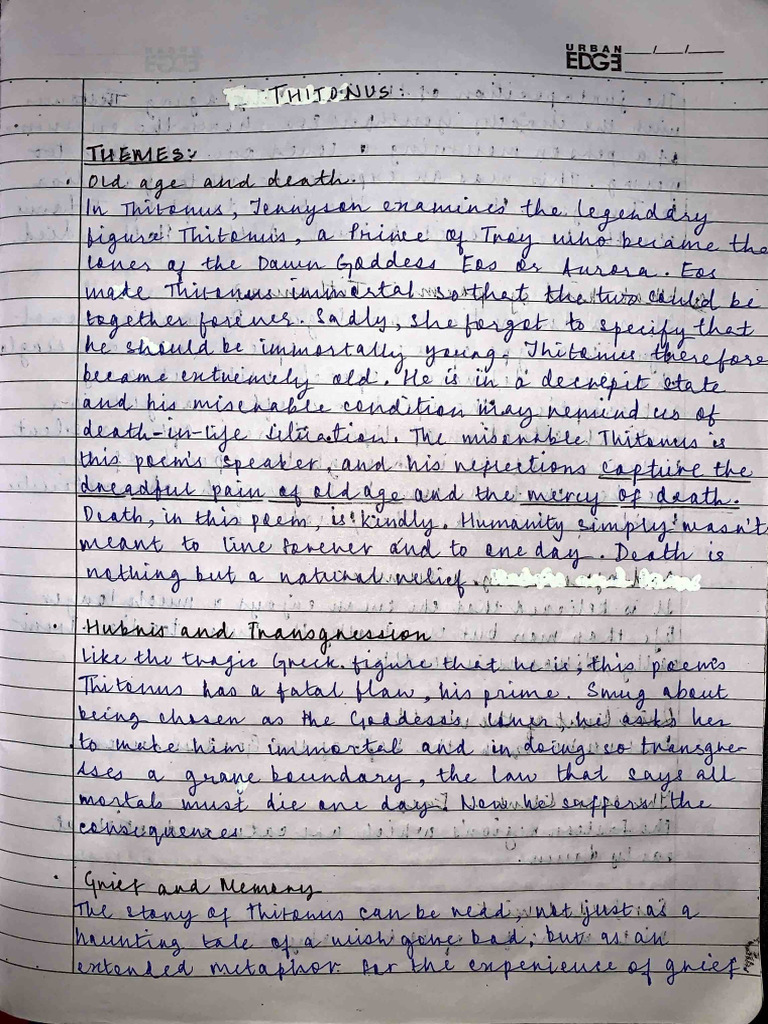 URBAN
EDGE __/__/__
THITONUS:
THEMES:
Old age and death.
In Thitonus, Tennyson examines the legendary
figure Thitonus, a Prince of Troy who became the
lover of the Dawn Goddess Eos or Aurora. Eos
made Thitonus immortal so that the two could be
together forever. Sadly, she forgot to specify that
he should be immortally young. Thitonus therefore
became extremely old. He is in a decrepit state
and his miserable condition may remind us of
death-in-life situation. The miserable Thitonus is
this poem's speaker, and his reflections capture the
dreadful pain of old age and the mercy of death.
Death, in this poem, is kindly. Humanity simply wasn't
meant to live forever and to one day. Death is
nothing but a natural relief.
· Hubris and Transgression
Like the tragic Greek figure that he is, this poem's
Thitonus has a fatal flaw, his prime. Smug about
being chosen as the Goddess's lover, he asks her
to make him immortal and in doing so transgre-
sses a grave boundary, the law that says all
mortals must die one day. Now he suffers the
consequences
· Grief and Memory
The story of Thitonus can be read, not just as a
haunting tale of a wish gone bad, but as an
extended metaphor for the experience of grief